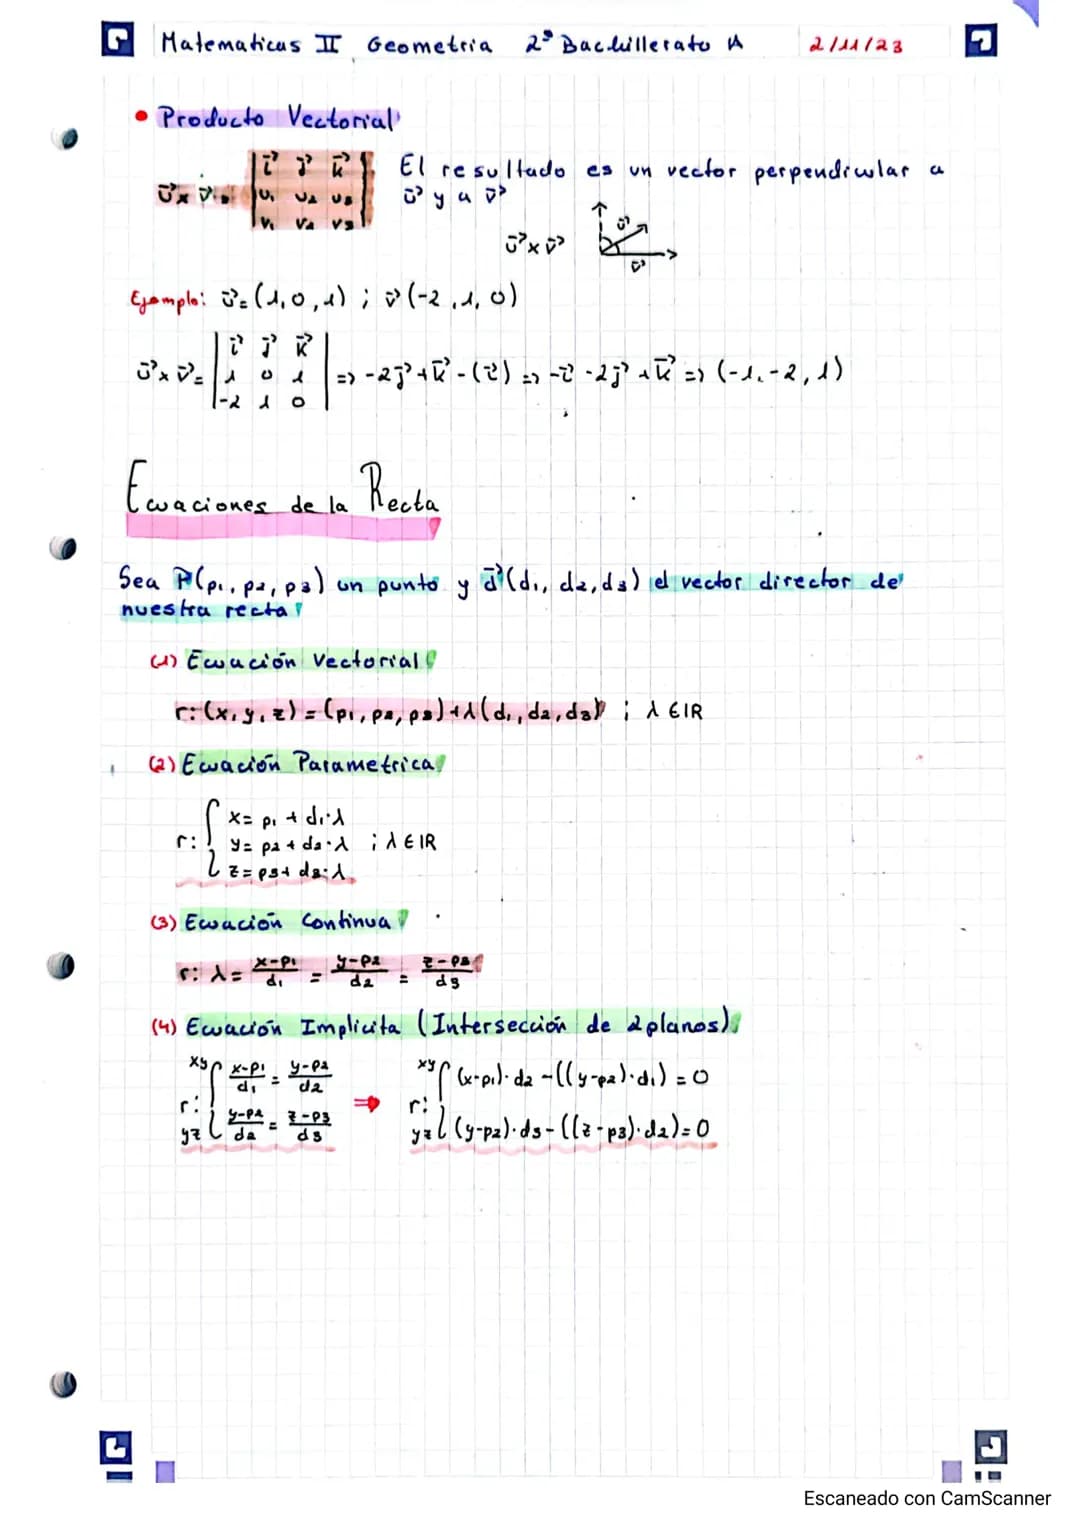 Matematicas II Geometria 2º Bachillerato A 2/11/23
• Producto Vectorial
u⃗ x v⃗ = | i⃗ j⃗ k⃗ | El resultado es un vector perpendicular a
| u₁ u₂ u₃ | u⃗ y a v⃗
| v₁ v₂ v₃ |
u⃗ x v⃗ u⃗ v⃗
Ejemplo: u⃗ = (1, 0, 1) ; v⃗ (-2, 1, 0)
u⃗ x v⃗ = | i⃗ j⃗ k⃗ |
| 1 0 1 | => -2j⃗ + k⃗ - (i⃗) => -i⃗ - 2j⃗ + k⃗ => (-1, -2, 1)
| -2 1 0 |
Ecuaciones de la Recta
Sea P(p₁, p₂, p₃) un punto y d⃗(d₁, d₂, d₃) el vector director de
nuestra recta
(1) Ecuación Vectorial
r: (x, y, z) = (p₁, p₂, p₃) + λ(d₁, d₂, d₃) ; λ ∈ IR
(2) Ecuación Parametrica
r: { x = p₁ + d₁·λ
y = p₂ + d₂·λ ; λ ∈ IR
z = p₃ + d₃·λ
(3) Ecuación Continua
r: λ = (x-p₁)/d₁ = (y-p₂)/d₂ = (z-p₃)/d₃
(4) Ecuación Implicita (Intersección de 2 planos)
r: { xy (x-p₁)/d₁ = (y-p₂)/d₂ ⇒ r: { xy (x-p₁)·d₂ - ((y-p₂)·d₁) = 0
yz (y-p₂)/d₂ = (z-p₃)/d₃ yz (y-p₂)·d₃ - ((z-p₃)·d₂) = 0
Escaneado con CamScanner